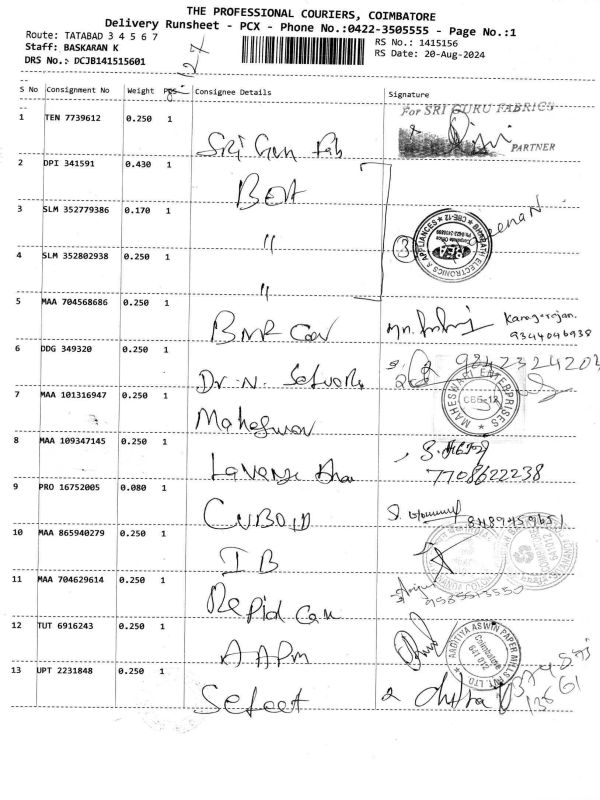 THE PROFESSIONAL COURIERS, COIMBATORE
Delivery Runsheet - PCX - Phone No.:0422-3505555 - Page No.:1
Route: TATABAD 3 4 5 6 7
RS No.: 1415156
Staff: BASKARAN K
RS Date: 20-Aug-2024
DRS No.: DCJB141515601
127
S No Consignment No Weight Pcs Consignee Details Signature
1 TEN 7739612 0.250 1 Sri Guru Fab
For SRI GURU FABRICS
PARTNER
2 DPI 341591 0.430 1 BEA
3 SLM 352779386 0.170 1 "
3
BHARATH ELECTRONICS & APPLIANCES
CBE-12
4 SLM 352802938 0.250 1 "
5 MAA 704568686 0.250 1 BMR Con
9344046938
6 DDG 349320 0.250 1 Dr. N.
9842324203
7 MAA 101316947 0.250 1
MAHESWARI ENTERPRISES
CBE-12
8 MAA 109347145 0.250 1
7708622238
9 PRO 16752005 0.080 1 CUBOID
8489459651
10 MAA 865940279 0.250 1 IB
11 MAA 704629614 0.250 1 Rapid Can
12 TUT 6916243 0.250 1 AAPM
AADITYA ASWIN PAPER MILLS PVT. LTD
Coimbatore
641 012
13 UPT 2231848 0.250 1 Select